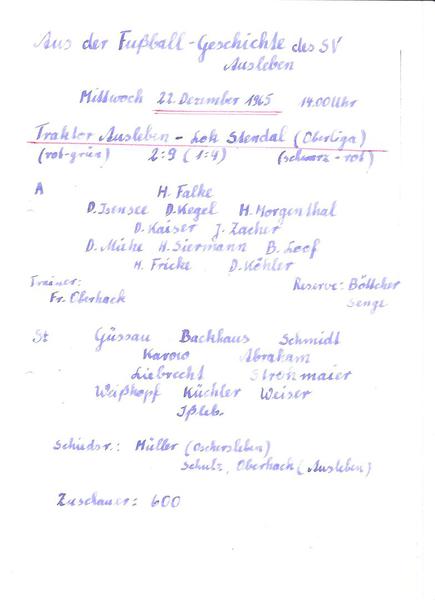 Aus der Fußball-Geschichte des SV
Ausleben
Mittwoch 22. Dezember 1965 14.00 Uhr
Traktor Ausleben - Lok Stendal (Oberliga)
(rot-grün) 2:9 (1:4) (schwarz-rot)
A H. Falke
D. Isensee D. Kegel H. Morgenthal
D. Kaiser J. Zacher
D. Miehe H. Siermann B. Loof
H. Fricke D. Köhler
Trainer: Reserve: Böttcher
Fr. Oberhack Senge
St Güssau Backhaus Schmidt
Karow Abraham
Liebrecht Strohmaier
Weißkopf Küchler Weiser
Ißleb.
Schiedsr.: Müller (Oschersleben)
Schulz, Oberhack (Ausleben)
Zuschauer: 600